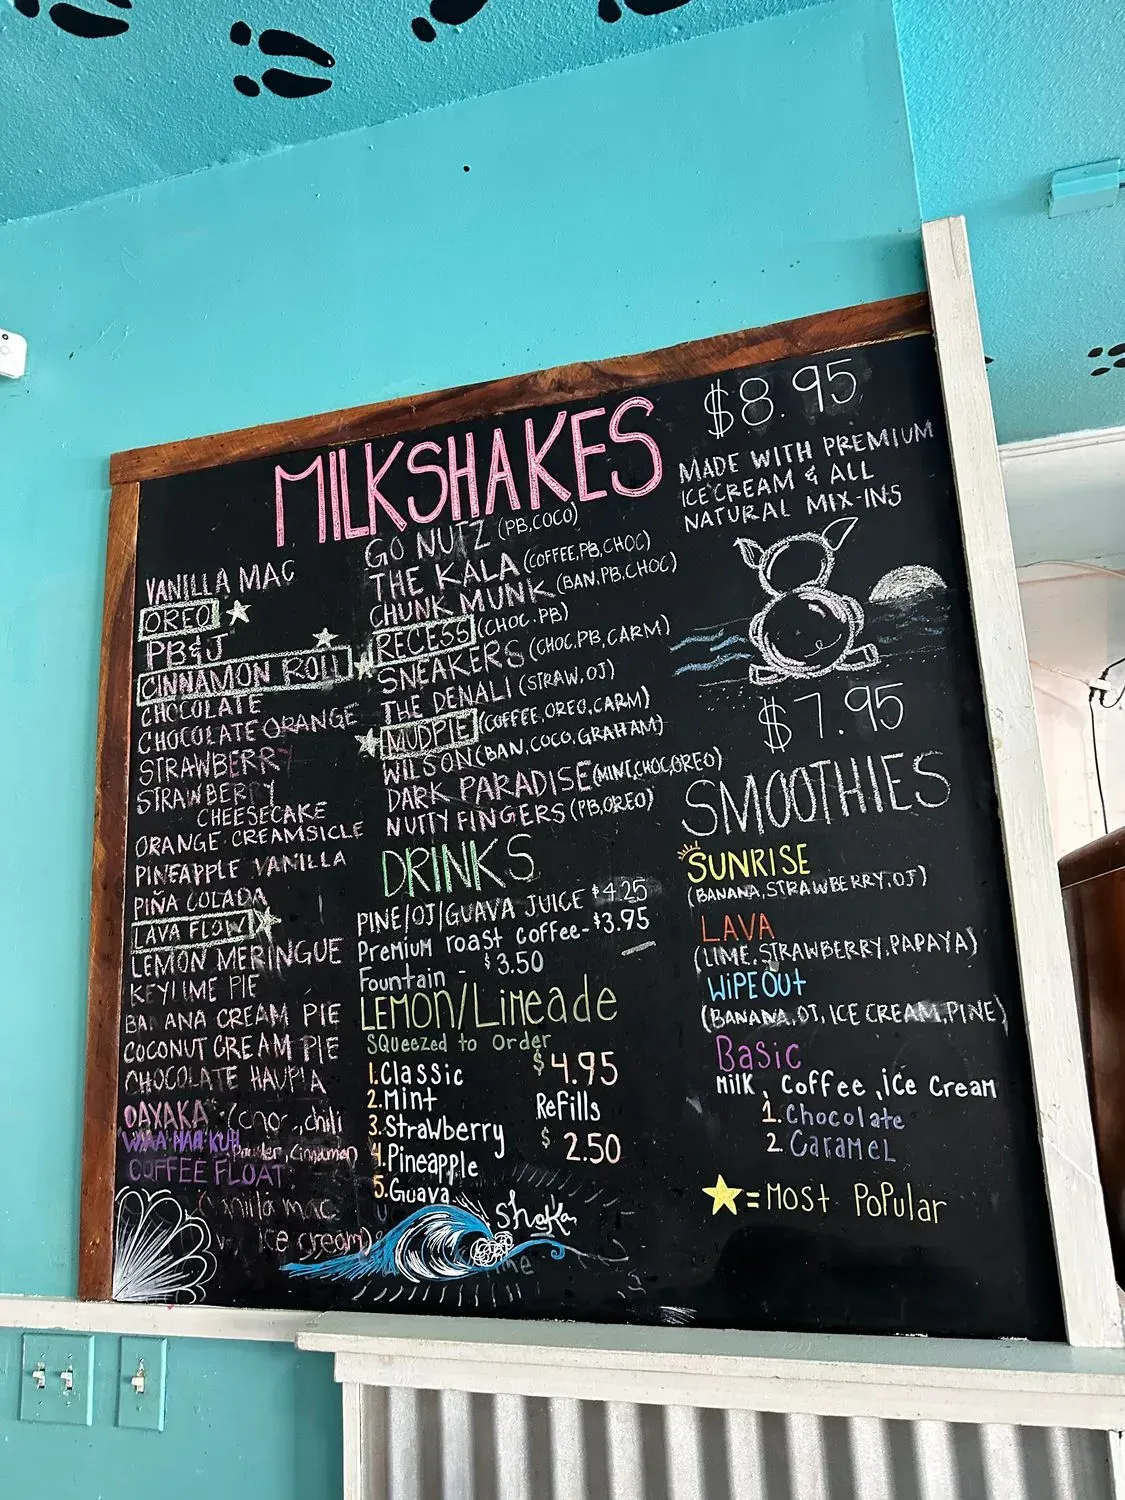 MILKSHAKES
$8.95
MADE WITH PREMIUM
ICE CREAM & ALL
NATURAL MIX-INS
VANILLA MAC
OREO
PB&J
CINNAMON ROLL
CHOCOLATE
CHOCOLATE ORANGE
STRAWBERRY
STRAWBERRY
CHEESECAKE
ORANGE CREAMSICLE
PINEAPPLE VANILLA
PIÑA COLADA
LAVA FLOW
LEMON MERINGUE
KEYLIME PIE
BANANA CREAM PIE
COCONUT CREAM PIE
CHOCOLATE HAUPIA
OAXAKA chili
Powder, Cinnamon
COFFEE FLOAT
mac
ice cream)
GO NUTZ (PB,COCO)
THE KALA (COFFEE,PB,CHOC)
CHUNK MUNK (BAN,PB,CHOC)
RECESS (CHOC.PB)
SNEAKERS (CHOC,PB,CARM)
THE DENALI (STRAW,OJ)
MUDPIE (COFFEE,OREO,CARM)
WILSON (BAN,COCO,GRAHAM)
DARK PARADISE (MINT,CHOC,OREO)
NUTTY FINGERS (PB,OREO)
DRINKS
PINE/OJ/GUAVA JUICE $4.25
Premium roast coffee-$3.95
Fountain - $3.50
LEMON/Limeade
SQueezed to Order
1.Classic $4.95
2.Mint Refills
3.Strawberry $2.50
4.Pineapple
5.Guava
Shaka
$7.95
SMOOTHIES
SUNRISE
(BANANA,STRAWBERRY,OJ)
LAVA
(LIME,STRAWBERRY,PAPAYA)
WiPEOUt
(BANANA,OJ,ICE CREAM,PINE)
Basic
Milk, coffee, ice cream
1.Chocolate
2.Caramel
=Most Popular